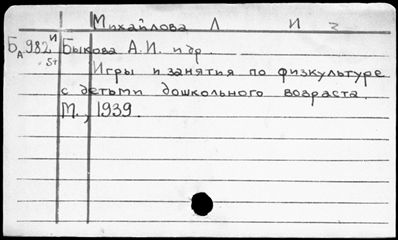 Михайлова Л И
Б 982 И Быкова А.И. и др.
А 5+
Игры и занятия по физкультуре
с детьми дошкольного возраста.
М., 1939.